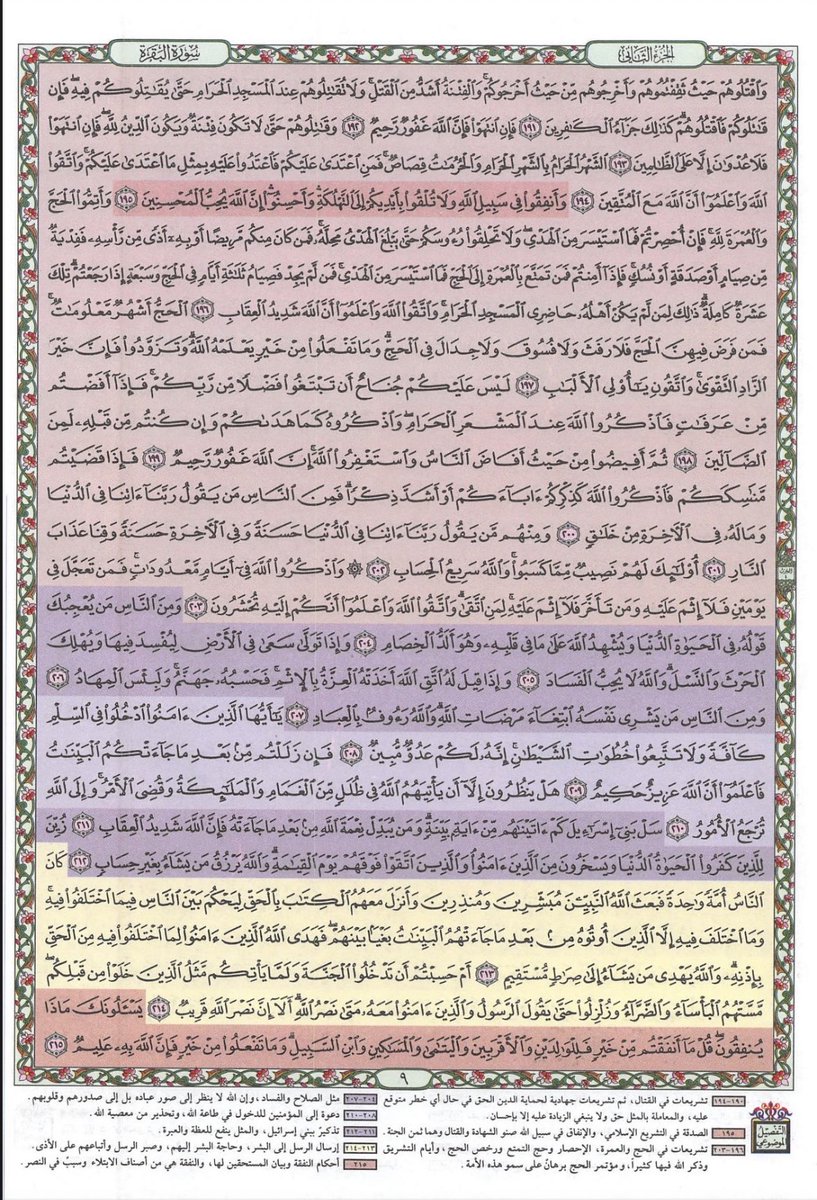 الجزء الثاني
سورة البقرة
وَٱقۡتُلُوهُمۡ حَيۡثُ ثَقِفۡتُمُوهُمۡ وَأَخۡرِجُوهُم مِّنۡ حَيۡثُ أَخۡرَجُوكُمۡۚ وَٱلۡفِتۡنَةُ أَشَدُّ مِنَ ٱلۡقَتۡلِۚ وَلَا تُقَٰتِلُوهُمۡ عِندَ ٱلۡمَسۡجِدِ ٱلۡحَرَامِ حَتَّىٰ يُقَٰتِلُوكُمۡ فِيهِۖ فَإِن
قَٰتَلُوكُمۡ فَٱقۡتُلُوهُمۡۗ كَذَٰلِكَ جَزَآءُ ٱلۡكَٰفِرِينَ ١٩١ فَإِنِ ٱنتَهَوۡاْ فَإِنَّ ٱللَّهَ غَفُورٞ رَّحِيمٞ ١٩٢ وَقَٰتِلُوهُمۡ حَتَّىٰ لَا تَكُونَ فِتۡنَةٞ وَيَكُونَ ٱلدِّينُ لِلَّهِۖ فَإِنِ ٱنتَهَوۡاْ
فَلَا عُدۡوَٰنَ إِلَّا عَلَى ٱلظَّٰلِمِينَ ١٩٣ ٱلشَّهۡرُ ٱلۡحَرَامُ بِٱلشَّهۡرِ ٱلۡحَرَامِ وَٱلۡحُرُمَٰتُ قِصَاصٞۚ فَمَنِ ٱعۡتَدَىٰ عَلَيۡكُمۡ فَٱعۡتَدُواْ عَلَيۡهِ بِمِثۡلِ مَا ٱعۡتَدَىٰ عَلَيۡكُمۡۚ وَٱتَّقُواْ
ٱللَّهَ وَٱعۡلَمُوٓاْ أَنَّ ٱللَّهَ مَعَ ٱلۡمُتَّقِينَ ١٩٤ وَأَنفِقُواْ فِي سَبِيلِ ٱللَّهِ وَلَا تُلۡقُواْ بِأَيۡدِيكُمۡ إِلَى ٱلتَّهۡلُكَةِ وَأَحۡسِنُوٓاْۚ إِنَّ ٱللَّهَ يُحِبُّ ٱلۡمُحۡسِنِينَ ١٩٥ وَأَتِمُّواْ ٱلۡحَجَّ
وَٱلۡعُمۡرَةَ لِلَّهِۚ فَإِنۡ أُحۡصِرۡتُمۡ فَمَا ٱسۡتَيۡسَرَ مِنَ ٱلۡهَدۡيِۖ وَلَا تَحۡلِقُواْ رُءُوسَكُمۡ حَتَّىٰ يَبۡلُغَ ٱلۡهَدۡيُ مَحِلَّهُۥۚ فَمَن كَانَ مِنكُم مَّرِيضًا أَوۡ بِهِۦٓ أَذٗى مِّن رَّأۡسِهِۦ فَفِدۡيَةٞ
مِّن صِيَامٍ أَوۡ صَدَقَةٍ أَوۡ نُسُكٖۚ فَإِذَآ أَمِنتُمۡ فَمَن تَمَتَّعَ بِٱلۡعُمۡرَةِ إِلَى ٱلۡحَجِّ فَمَا ٱسۡتَيۡسَرَ مِنَ ٱلۡهَدۡيِۚ فَمَن لَّمۡ يَجِدۡ فَصِيَامُ ثَلَٰثَةِ أَيَّامٖ فِي ٱلۡحَجِّ وَسَبۡعَةٍ إِذَا رَجَعۡتُمۡۗ تِلۡكَ
عَشَرَةٞ كَامِلَةٞۗ ذَٰلِكَ لِمَن لَّمۡ يَكُنۡ أَهۡلُهُۥ حَاضِرِي ٱلۡمَسۡجِدِ ٱلۡحَرَامِۚ وَٱتَّقُواْ ٱللَّهَ وَٱعۡلَمُوٓاْ أَنَّ ٱللَّهَ شَدِيدُ ٱلۡعِقَابِ ١٩٦ ٱلۡحَجُّ أَشۡهُرٞ مَّعۡلُومَٰتٞۚ
فَمَن فَرَضَ فِيهِنَّ ٱلۡحَجَّ فَلَا رَفَثَ وَلَا فُسُوقَ وَلَا جِدَالَ فِي ٱلۡحَجِّۗ وَمَا تَفۡعَلُواْ مِنۡ خَيۡرٖ يَعۡلَمۡهُ ٱللَّهُۗ وَتَزَوَّدُواْ فَإِنَّ خَيۡرَ
ٱلزَّادِ ٱلتَّقۡوَىٰۖ وَٱتَّقُونِ يَٰٓأُوْلِي ٱلۡأَلۡبَٰبِ ١٩٧ لَيۡسَ عَلَيۡكُمۡ جُنَاحٌ أَن تَبۡتَغُواْ فَضۡلٗا مِّن رَّبِّكُمۡۚ فَإِذَآ أَفَضۡتُم
مِّنۡ عَرَفَٰتٖ فَٱذۡكُرُواْ ٱللَّهَ عِندَ ٱلۡمَشۡعَرِ ٱلۡحَرَامِۖ وَٱذۡكُرُوهُ كَمَا هَدَىٰكُمۡ وَإِن كُنتُم مِّن قَبۡلِهِۦ لَمِنَ
ٱلضَّآلِّينَ ١٩٨ ثُمَّ أَفِيضُواْ مِنۡ حَيۡثُ أَفَاضَ ٱلنَّاسُ وَٱسۡتَغۡفِرُواْ ٱللَّهَۚ إِنَّ ٱللَّهَ غَفُورٞ رَّحِيمٞ ١٩٩ فَإِذَا قَضَيۡتُم
مَّنَٰسِكَكُمۡ فَٱذۡكُرُواْ ٱللَّهَ كَذِكۡرِكُمۡ ءَابَآءَكُمۡ أَوۡ أَشَدَّ ذِكۡرٗاۗ فَمِنَ ٱلنَّاسِ مَن يَقُولُ رَبَّنَآ ءَاتِنَا فِي ٱلدُّنۡيَا
وَمَا لَهُۥ فِي ٱلۡأٓخِرَةِ مِنۡ خَلَٰقٖ ٢٠٠ وَمِنۡهُم مَّن يَقُولُ رَبَّنَآ ءَاتِنَا فِي ٱلدُّنۡيَا حَسَنَةٗ وَفِي ٱلۡأٓخِرَةِ حَسَنَةٗ وَقِنَا عَذَابَ
ٱلنَّارِ ٢٠١ أُوْلَٰٓئِكَ لَهُمۡ نَصِيبٞ مِّمَّا كَسَبُواْۚ وَٱللَّهُ سَرِيعُ ٱلۡحِسَابِ ٢٠٢ ۞ وَٱذۡكُرُواْ ٱللَّهَ فِيٓ أَيَّامٖ مَّعۡدُودَٰتٖۚ فَمَن تَعَجَّلَ فِي
يَوۡمَيۡنِ فَلَآ إِثۡمَ عَلَيۡهِ وَمَن تَأَخَّرَ فَلَآ إِثۡمَ عَلَيۡهِۚ لِمَنِ ٱتَّقَىٰۗ وَٱتَّقُواْ ٱللَّهَ وَٱعۡلَمُوٓاْ أَنَّكُمۡ إِلَيۡهِ تُحۡشَرُونَ ٢٠٣ وَمِنَ ٱلنَّاسِ مَن يُعۡجِبُكَ
قَوۡلُهُۥ فِي ٱلۡحَيَوٰةِ ٱلدُّنۡيَا وَيُشۡهِدُ ٱللَّهَ عَلَىٰ مَا فِي قَلۡبِهِۦ وَهُوَ أَلَدُّ ٱلۡخِصَامِ ٢٠٤ وَإِذَا تَوَلَّىٰ سَعَىٰ فِي ٱلۡأَرۡضِ لِيُفۡسِدَ فِيهَا وَيُهۡلِكَ
ٱلۡحَرۡثَ وَٱلنَّسۡلَۚ وَٱللَّهُ لَا يُحِبُّ ٱلۡفَسَادَ ٢٠٥ وَإِذَا قِيلَ لَهُ ٱتَّقِ ٱللَّهَ أَخَذَتۡهُ ٱلۡعِزَّةُ بِٱلۡإِثۡمِۚ فَحَسۡبُهُۥ جَهَنَّمُۖ وَلَبِئۡسَ ٱلۡمِهَادُ ٢٠٦
وَمِنَ ٱلنَّاسِ مَن يَشۡرِي نَفۡسَهُ ٱبۡتِغَآءَ مَرۡضَاتِ ٱللَّهِۚ وَٱللَّهُ رَءُوفُۢ بِٱلۡعِبَادِ ٢٠٧ يَٰٓأَيُّهَا ٱلَّذِينَ ءَامَنُواْ ٱدۡخُلُواْ فِي ٱلسِّلۡمِ
كَآفَّةٗ وَلَا تَتَّبِعُواْ خُطُوَٰتِ ٱلشَّيۡطَٰنِۚ إِنَّهُۥ لَكُمۡ عَدُوّٞ مُّبِينٞ ٢٠٨ فَإِن زَلَلۡتُم مِّنۢ بَعۡدِ مَا جَآءَتۡكُمُ ٱلۡبَيِّنَٰتُ
فَٱعۡلَمُوٓاْ أَنَّ ٱللَّهَ عَزِيزٌ حَكِيمٌ ٢٠٩ هَلۡ يَنظُرُونَ إِلَّآ أَن يَأۡتِيَهُمُ ٱللَّهُ فِي ظُلَلٖ مِّنَ ٱلۡغَمَامِ وَٱلۡمَلَٰٓئِكَةُ وَقُضِيَ ٱلۡأَمۡرُۚ وَإِلَى ٱللَّهِ
تُرۡجَعُ ٱلۡأُمُورُ ٢١٠ سَلۡ بَنِيٓ إِسۡرَٰٓءِيلَ كَمۡ ءَاتَيۡنَٰهُم مِّنۡ ءَايَةِۭ بَيِّنَةٖۗ وَمَن يُبَدِّلۡ نِعۡمَةَ ٱللَّهِ مِنۢ بَعۡدِ مَا جَآءَتۡهُ فَإِنَّ ٱللَّهَ شَدِيدُ ٱلۡعِقَابِ ٢١١ زُيِّنَ
لِلَّذِينَ كَفَرُواْ ٱلۡحَيَوٰةُ ٱلدُّنۡيَا وَيَسۡخَرُونَ مِنَ ٱلَّذِينَ ءَامَنُواْۘ وَٱلَّذِينَ ٱتَّقَوۡاْ فَوۡقَهُمۡ يَوۡمَ ٱلۡقِيَٰمَةِۗ وَٱللَّهُ يَرۡزُقُ مَن يَشَآءُ بِغَيۡرِ حِسَابٖ ٢١٢ كَانَ
ٱلنَّاسُ أُمَّةٗ وَٰحِدَةٗ فَبَعَثَ ٱللَّهُ ٱلنَّبِيِّـۧنَ مُبَشِّرِينَ وَمُنذِرِينَ وَأَنزَلَ مَعَهُمُ ٱلۡكِتَٰبَ بِٱلۡحَقِّ لِيَحۡكُمَ بَيۡنَ ٱلنَّاسِ فِيمَا ٱخۡتَلَفُواْ فِيهِۚ
وَمَا ٱخۡتَلَفَ فِيهِ إِلَّا ٱلَّذِينَ أُوتُوهُ مِنۢ بَعۡدِ مَا جَآءَتۡهُمُ ٱلۡبَيِّنَٰتُ بَغۡيَۢا بَيۡنَهُمۡۖ فَهَدَى ٱللَّهُ ٱلَّذِينَ ءَامَنُواْ لِمَا ٱخۡتَلَفُواْ فِيهِ مِنَ ٱلۡحَقِّ
بِإِذۡنِهِۦۗ وَٱللَّهُ يَهۡدِي مَن يَشَآءُ إِلَىٰ صِرَٰطٖ مُّسۡتَقِيمٍ ٢١٣ أَمۡ حَسِبۡتُمۡ أَن تَدۡخُلُواْ ٱلۡجَنَّةَ وَلَمَّا يَأۡتِكُم مَّثَلُ ٱلَّذِينَ خَلَوۡاْ مِن قَبۡلِكُمۖ
مَّسَّتۡهُمُ ٱلۡبَأۡسَآءُ وَٱلضَّرَّآءُ وَزُلۡزِلُواْ حَتَّىٰ يَقُولَ ٱلرَّسُولُ وَٱلَّذِينَ ءَامَنُواْ مَعَهُۥ مَتَىٰ نَصۡرُ ٱللَّهِۗ أَلَآ إِنَّ نَصۡرَ ٱللَّهِ قَرِيبٞ ٢١٤ يَسۡـَٔلُونَكَ مَاذَا
يُنفِقُونَۖ قُلۡ مَآ أَنفَقۡتُم مِّنۡ خَيۡرٖ فَلِلۡوَٰلِدَيۡنِ وَٱلۡأَقۡرَبِينَ وَٱلۡيَتَٰمَىٰ وَٱلۡمَسَٰكِينِ وَٱبۡنِ ٱلسَّبِيلِۗ وَمَا تَفۡعَلُواْ مِنۡ خَيۡرٖ فَإِنَّ ٱللَّهَ بِهِۦ عَلِيمٞ ٢١٥
٩
التفصيل الموضوعي
١٩٠-١٩٤ تشريعات في القتال، ثم تشريعات جهادية لحماية الدين الحق في حال أي خطر متوقع
عليه، والمعاملة بالمثل حق ولا ينبغي الزيادة عليه إلا بإحسان.
١٩٥ الصدقة في التشريع الإسلامي، والإنفاق في سبيل الله صنو الشهادة والقتال وهما ثمن الجنة.
١٩٦-٢٠٣ تشريعات في الحج والعمرة، الإحصار وحج التمتع ورخص الحج، وأيام التشريق
وذكر الله فيها كثيراً، ومؤتمر الحج برهانٌ على سمو هذه الأمة.
٢٠٤-٢٠٧ مثل الصلاح والفساد، وإن الله لا ينظر إلى صور عباده بل إلى صدورهم وقلوبهم.
٢٠٨-٢١٠ دعوة إلى المؤمنين للدخول في طاعة الله، وتحذير من معصية الله.
٢١١-٢١٢ تذكيرٌ ببني إسرائيل، والمثل ينفع للعظة والعبرة.
٢١٣-٢١٤ إرسال الرسل إلى البشر، وحاجة البشر إليهم، وصبر الرسل وأتباعهم على الأذى.
٢١٥ أحكام النفقة وبيان المستحقين لها، والنفقة هي من أصناف الابتلاء وسببٌ في النصر.